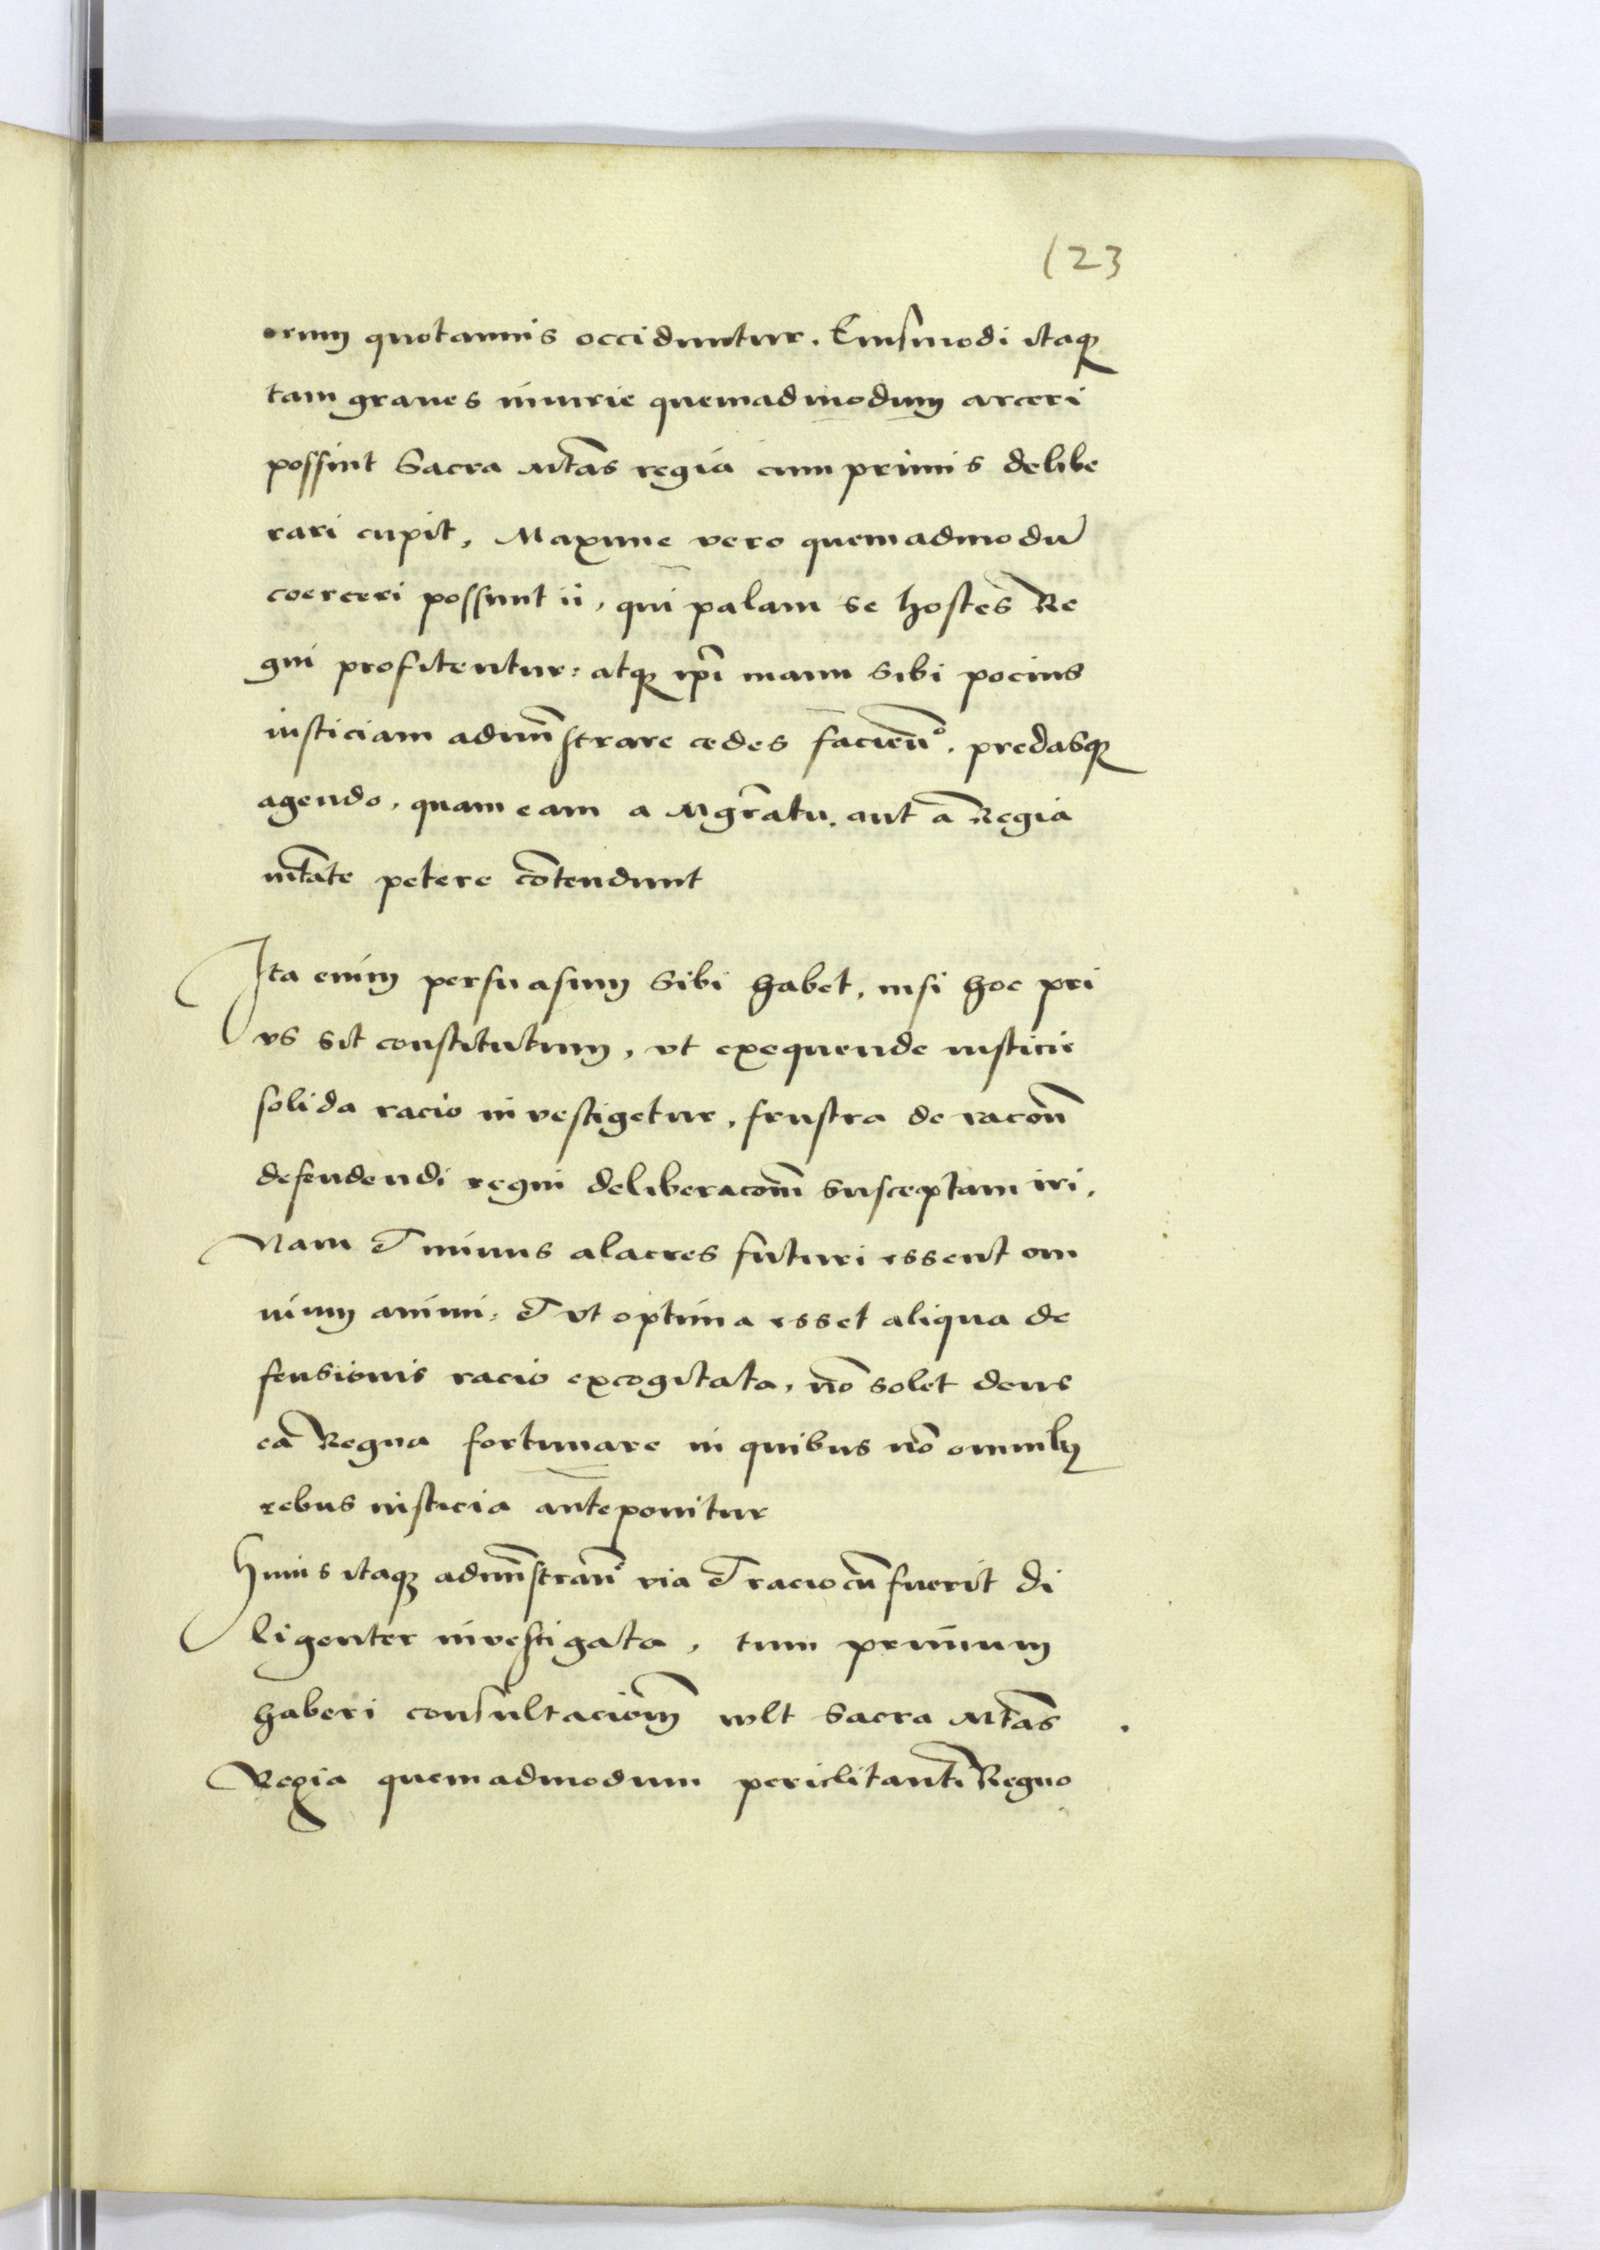 123
orum quotannis occiduntur. Eiusmodi itaqꝫ
tam graues iniurie quemadmodum arceri
possint Sacra Mtas regia cum primis delibe
rari cupit, Maxime vero quemadmodū
coerceri possunt ii, qui palam se hostes Re
gni profitentur: atqꝫ ip̄i manu sibi pocius
iusticiam admn̄strare cedes facien̄º. predasqꝫ
agendo, quam eam a Mgr̄atu. aut a Regia
mtate petere cōtendunt
Ita enim persuasum sibi habet, nisi hoc pri
us sit constitutum, vt exequende iusticie
solida racio investigetur, frustra de racōn
defendendi regni deliberacōm susceptam iri.
Nam et minus alacres futuri essent om
nium animi: et vt optima esset aliqua de
fensionis racio excogitata, nō solet deus
ea Regna fortunare in quibus nō omnibꝫ
rebus iusticia anteponitur
Huius itaqꝫ admn̄stran̄e via et racio cū fuerit di
ligenter investigata, tum primum
haberi consultaciōm wlt Sacra Mtas
Regia quemadmodum periclitanti Regno